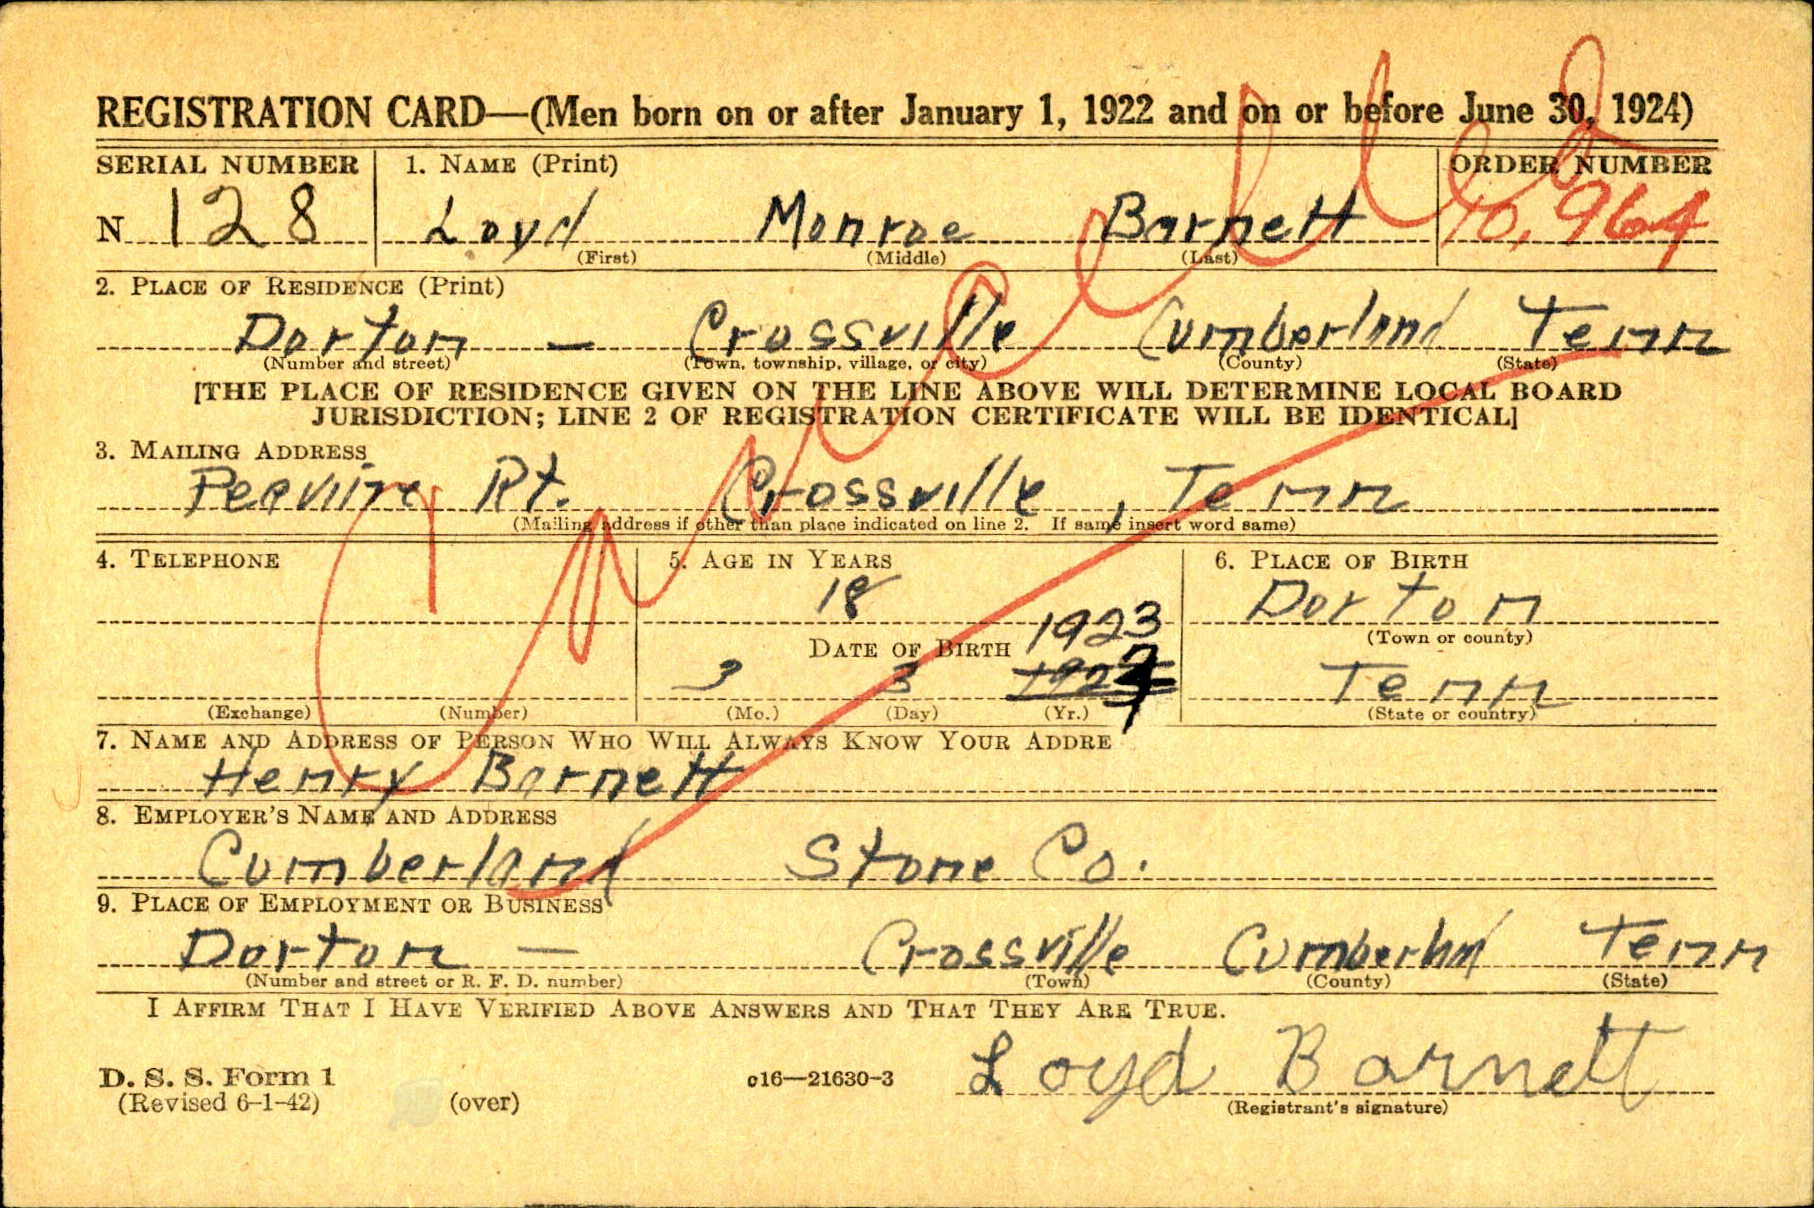 REGISTRATION CARD—(Men born on or after January 1, 1922 and on or before June 30, 1924)
SERIAL NUMBER 1. NAME (Print) ORDER NUMBER
N 128 Loyd Monroe Barnett 10,964
(First) (Middle) (Last)
2. PLACE OF RESIDENCE (Print)
Dorton — Crossville Cumberland Tenn
(Number and street) (Town, township, village, or city) (County) (State)
[THE PLACE OF RESIDENCE GIVEN ON THE LINE ABOVE WILL DETERMINE LOCAL BOARD
JURISDICTION; LINE 2 OF REGISTRATION CERTIFICATE WILL BE IDENTICAL]
3. MAILING ADDRESS
Peavine Rt. Crossville, Tenn
(Mailing address if other than place indicated on line 2. If same insert word same)
Cancelled
4. TELEPHONE 5. AGE IN YEARS 6. PLACE OF BIRTH
18 Dorton
(Town or county)
DATE OF BIRTH 1923
3 3 Tenn
(Exchange) (Number) (Mo.) (Day) (Yr.) (State or country)
7. NAME AND ADDRESS OF PERSON WHO WILL ALWAYS KNOW YOUR ADDRE
Henry Barnett
8. EMPLOYER'S NAME AND ADDRESS
Cumberland Stone Co.
9. PLACE OF EMPLOYMENT OR BUSINESS
Dorton — Crossville Cumberland Tenn
(Number and street or R. F. D. number) (Town) (County) (State)
I AFFIRM THAT I HAVE VERIFIED ABOVE ANSWERS AND THAT THEY ARE TRUE.
D. S. S. Form 1
(Revised 6-1-42) (over) c16—21630-3 Loyd Barnett
(Registrant's signature)